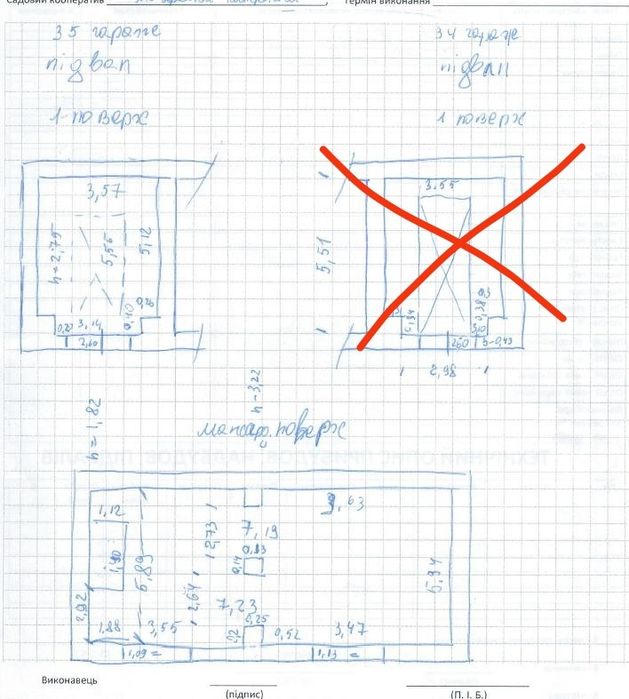 Садовий кооператив
Термін виконання
35 гараж
34 гараж
підвал
підвал
1 поверх
1 поверх
3,57
3.55
h=2,75
5,56
5,12
5,51
0,26
0,40
0,20
3,14
2,60
0,3
0,38
0,34
3,10
260
h-0,43
2,98
h-3,22
h=1,82
мансард. поверх
1,12
3,63
7,19
2,73
0,13
0,14
1,90
5,89
5,34
2,64
2,92
7,23
0,25
1,88
3,55
0,2
0,52
3,47
1,09=
1,13=
Виконавець
(підпис)
(П. І. Б.)